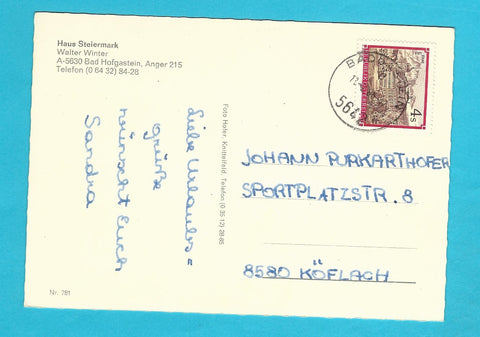 Haus Steiermark
Walter Winter
A-5630 Bad Hofgastein, Anger 215
Telefon (0 64 32) 84-28
Liebe Urlaubs=
grüße
wünscht Euch
Sandra
Nr. 781
Foto Hofer, Knittelfeld, Telefon (0 35 12) 28-65
4 S
5640
JOHANN PURKARTHOFER
SPORTPLATZSTR. 8
8580 KÖFLACH